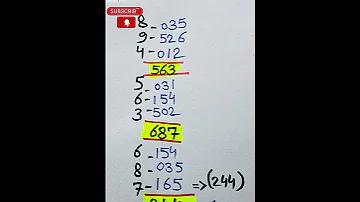 SUBSCRIBE
8-035
9-526
4-012
563
5-031
6-154
3-502
687
6-154
8-035
7-165 => (244)